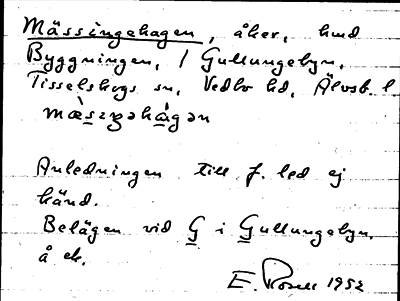 Mässingehagen, åker, hmd
Byggningen, 1 Gullungebyn,
Tisselskogs sn, Vedbo hd, Älvsb. l
Anledningen till f. led ej
känd.
Belägen vid G i Gullungebyn.
å ek.
E. Rosell 1952